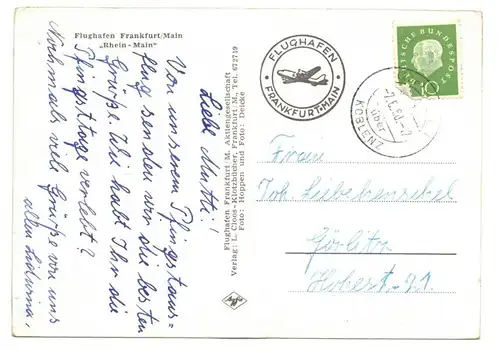 Flughafen Frankfurt/Main
„Rhein-Main“
Liebe Mutti!
Von unserem Pfingstaus=
flug senden wir die besten
Grüße. Wie habt Ihr die
Pfingsttage verlebt?
Nochmals viele Grüße von uns
allen
Flughafen Frankfurt/M. Aktiengesellschaft
Verlag: L. Cloos-Klotzbücher, Frankfurt/M., Tel. 672749
Foto: Hoppen und Foto: Deicke
Agfa
FLUGHAFEN
FRANKFURT-MAIN
DEUTSCHE BUNDESPOST
10
über
KOBLENZ
Frau
Joh.
Görlitz